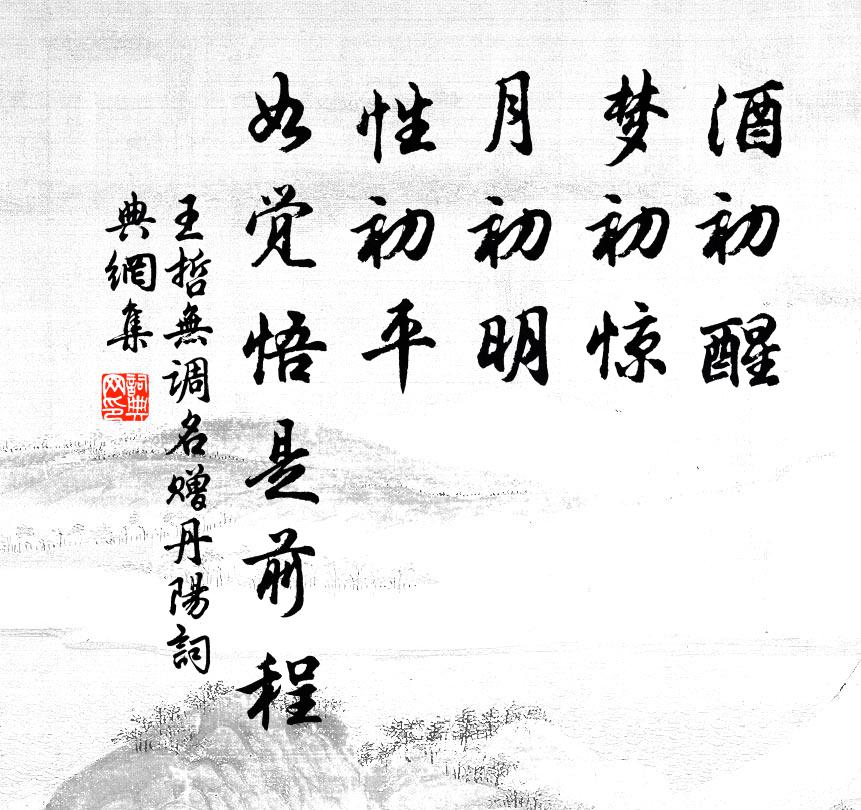 酒初醒
梦初惊
月初明
性初平
如觉悟是前程
王哲無调名赠丹陽詞
典網集
詞典
网印